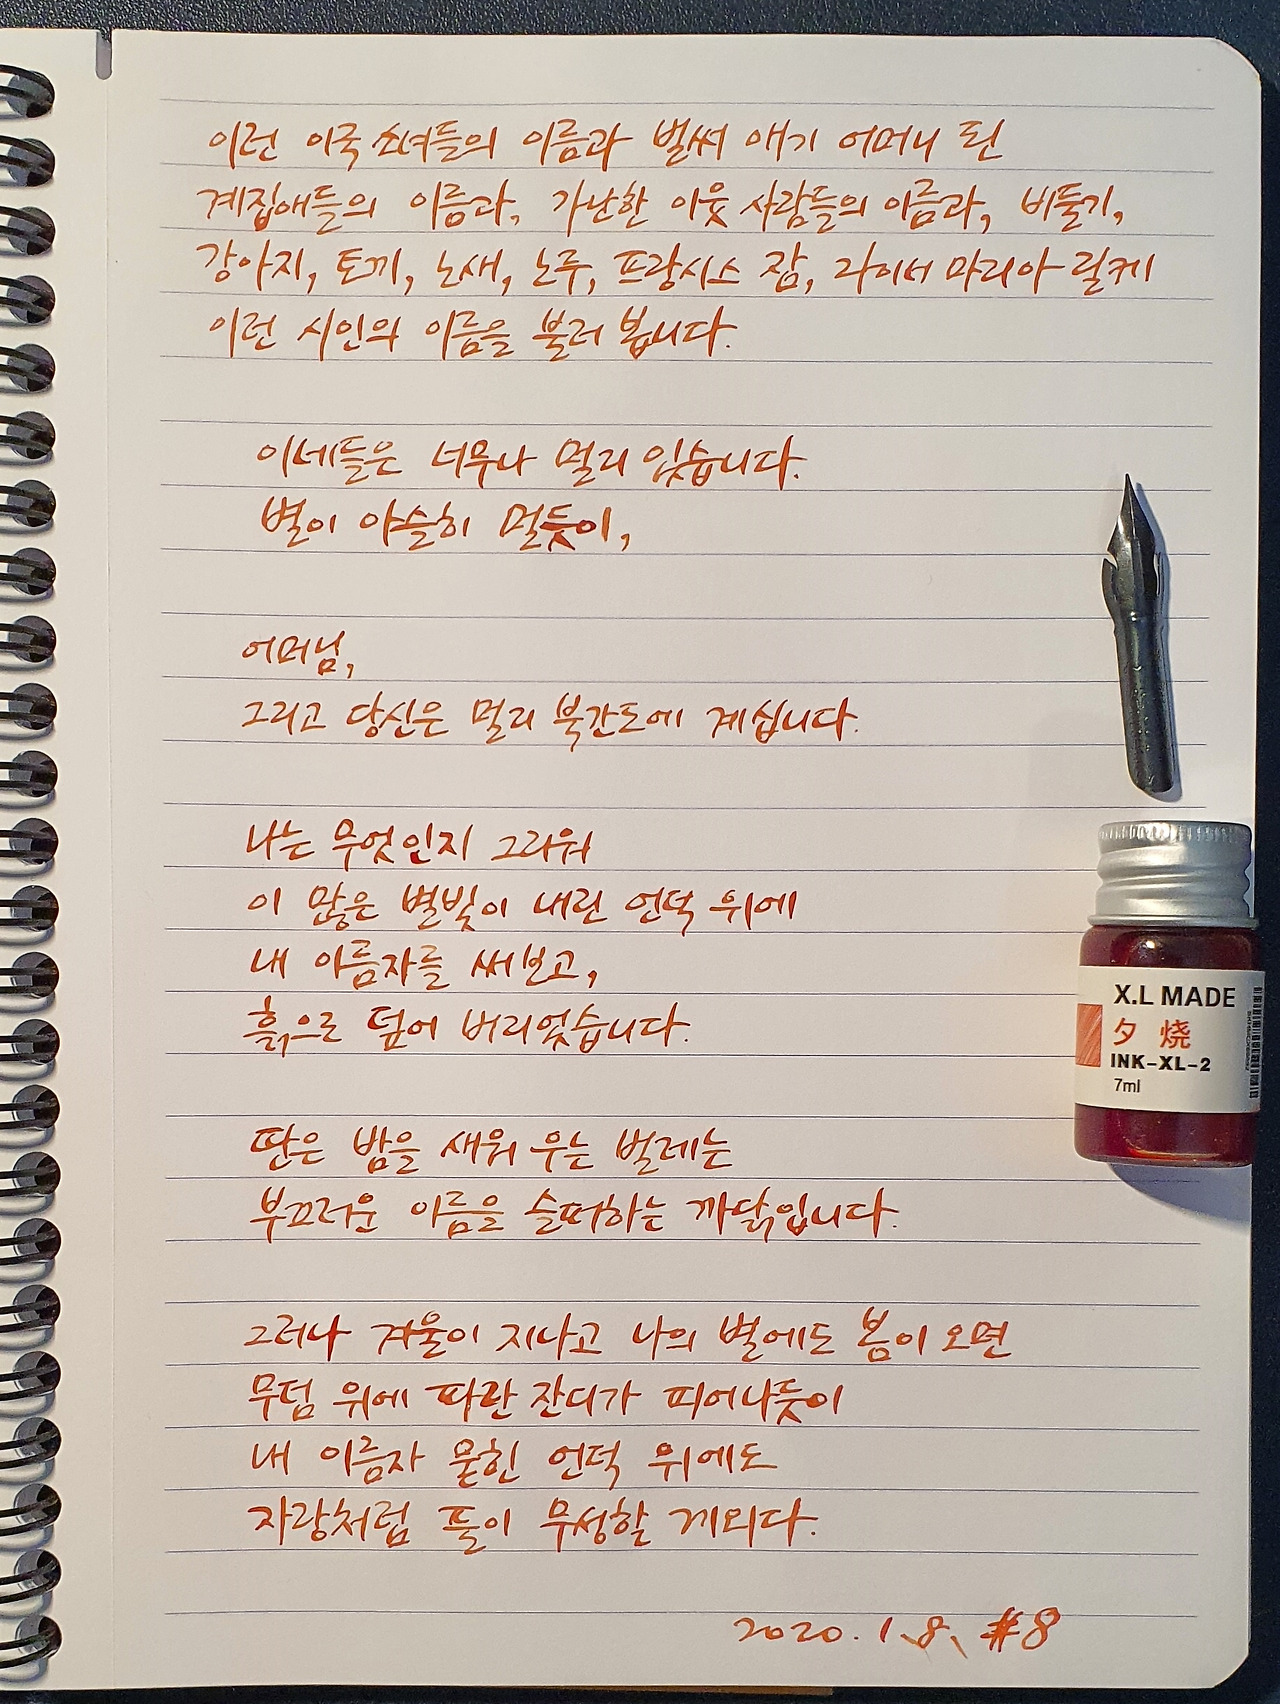 이런 이국 소녀들의 이름과 벌써 애기 어머니 된
계집애들의 이름과, 가난한 이웃 사람들의 이름과, 비둘기,
강아지, 토끼, 노새, 노루, 프랑시스 잠, 라이너 마리아 릴케
이런 시인의 이름을 불러 봅니다.
이네들은 너무나 멀리 있습니다.
별이 아슬히 멀듯이,
어머님,
그리고 당신은 멀리 북간도에 계십니다.
나는 무엇인지 그리워
이 많은 별빛이 내린 언덕 위에
내 이름자를 써보고,
흙으로 덮어 버리었습니다.
딴은 밤을 새워 우는 벌레는
부끄러운 이름을 슬퍼하는 까닭입니다.
그러나 겨울이 지나고 나의 별에도 봄이 오면
무덤 위에 파란 잔디가 피어나듯이
내 이름자 묻힌 언덕 위에도
자랑처럼 풀이 무성할 게외다.
2020. 1. 8. #8
X.L MADE
夕 烧
INK-XL-2
7ml